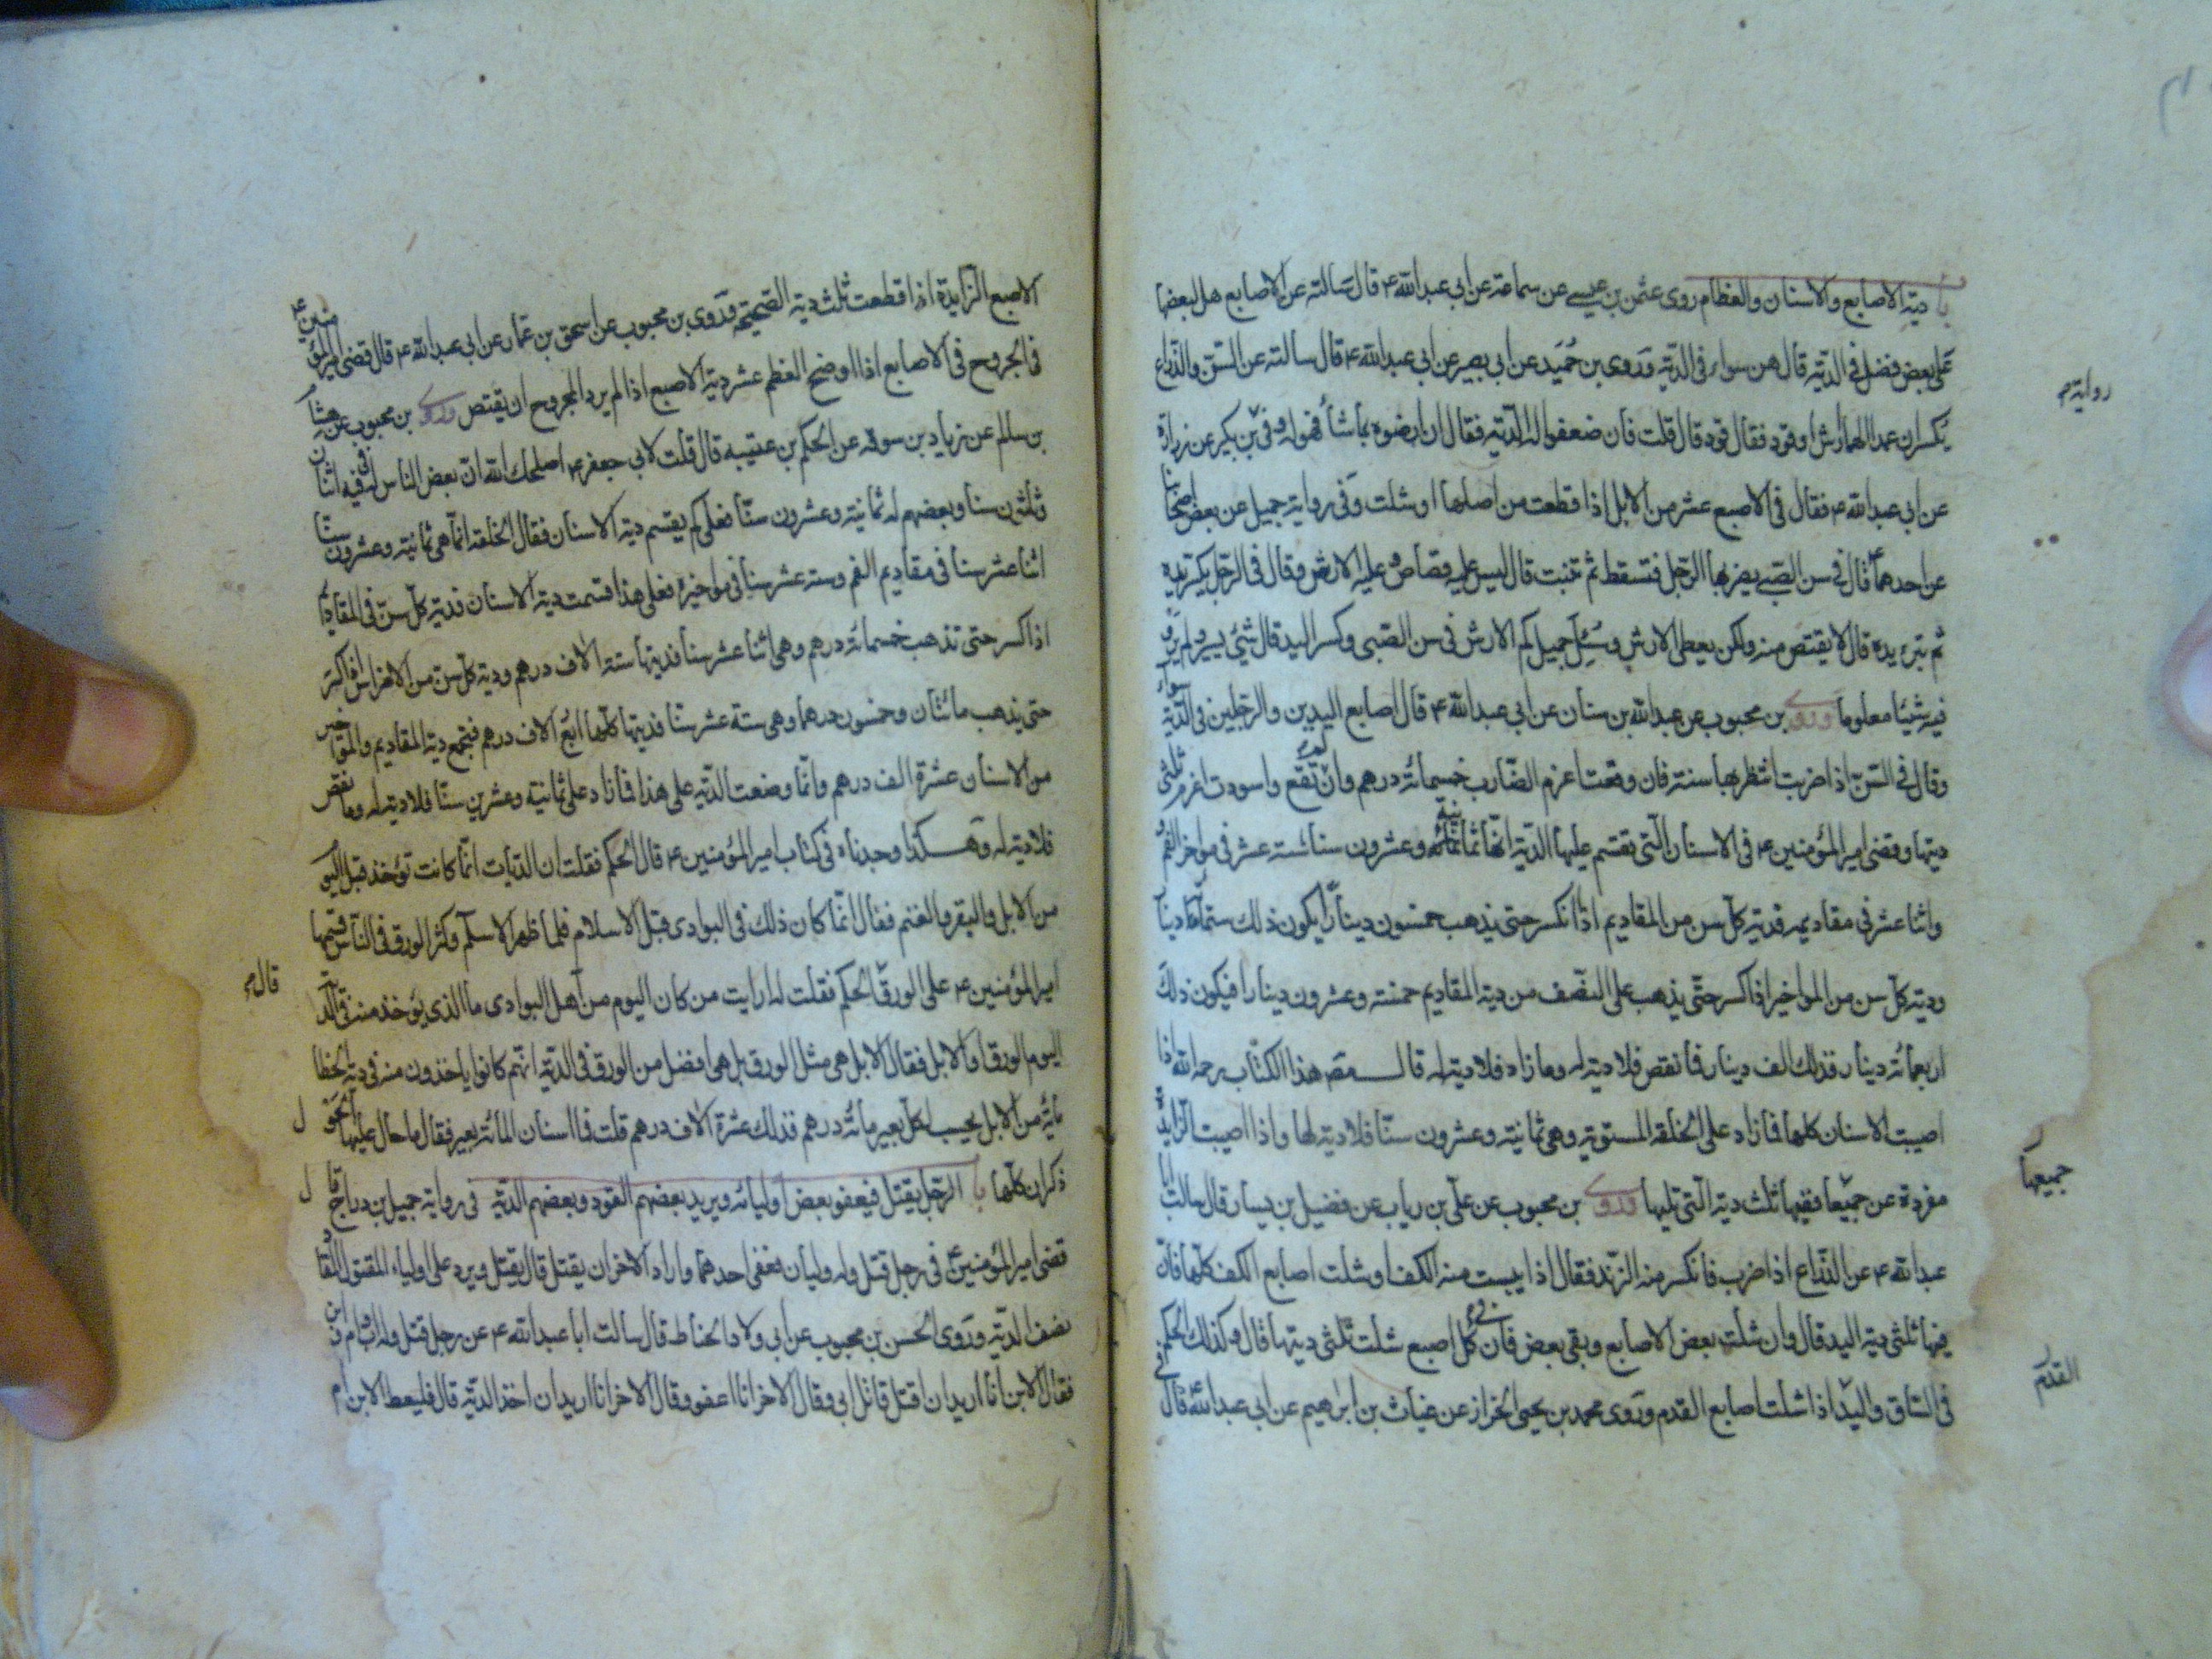 باب دية الاصابع والاسنان والعظام روى عثمن بن عيسى عن سماعة عن ابى عبدالله ع قال سالته عن الاصابع هل لبعضها
على بعض فضل فى الدية قال هن سواء فى الدية وروى بن حميد عن ابى بصير عن ابى عبدالله ع قال سالته عن السن والذراع
يكسران عمدا الهما ارش او قود فقال قود قال قلت فان ضعفوا له الدية فقال ان ارضوه بما شاء فهو له وفى بن بكير عن زرارة
عن ابى عبدالله ع فقال فى الاصبع عشر من الابل اذا قطعت من اصلها او شلت وفى رواية جميل عن بعض اصحابنا
عن احدهما ع قال فى سن الصبى يضربها الرجل فتسقط ثم تنبت قال ليس عليه قصاص وعليه الارش وقال فى الرجل يكسر يده
ثم تبرء يده قال لا يقتص منه ولكن يعطى الارش وسئل جميل كم الارش فى سن الصبى وكسر اليد قال شئ يسير ولم يرو
فيه شيئا معلوما وروى بن محبوب عن عبدالله بن سنان عن ابى عبدالله ع قال اصابع اليدين والرجلين فى الدية سواء
وقال فى السن اذا ضربت انتظر بها سنة فان وقعت اغرم الضارب خمسمائة درهم وان لم تقع واسودت اغرم ثلثى
ديتها وقضى امير المؤمنين ع فى الاسنان التى تقسم عليها الدية انها ثمانية وعشرون سنا ستة عشر فى مواخر الفم
واثنا عشر فى مقاديمه فدية كل سن من المقاديم اذا انكسر حتى يذهب خمسون دينارا يكون ذلك ستمائة دينار
ودية كل سن من المواخير اذا كسر حتى يذهب على النصف من دية المقاديم خمسة وعشرون دينارا فيكون ذلك
اربعمائة دينار فذلك الف دينار فما نقص فلا دية له وما زاد فلا دية له قال مص هذا الكتاب رحمه الله اذا
اصيبت الاسنان كلها فما زاد على الخلقة المستوية وهى ثمانية وعشرون سنا فلا دية لها واذا اصيبت الزايدة
مفردة عن جميعا ففيها ثلث دية التى تليها وروى بن محبوب عن على بن رياب عن فضيل بن يسار قال سالت ابا
عبدالله ع عن الذراع اذا ضرب فانكسر منه الزند فقال اذا يبست منه الكف او شلت اصابع الكف كلها فان
فيها ثلثى دية اليد قال وان شلت بعض الاصابع وبقى بعض فان فى كل اصبع شلت ثلثى ديتها قال وكذلك الحكم
فى الساق واليد اذا شلت اصابع القدم وروى محمد بن يحيى الخزاز عن غياث بن ابرهيم عن ابى عبدالله ع قال فى
رواية
جميعها
القدم
الاصبع الزايدة اذا قطعت ثلث دية الصحيحة وروى بن محبوب عن اسحق بن عمار عن ابى عبدالله ع قال قضى امير المؤمنين ع
فى الجروح فى الاصابع اذا اوضح العظم عشر دية الاصبع اذا لم يرد المجروح ان يقتص وروى بن محبوب عن هشام
بن سالم عن زياد بن سوقه عن الحكم بن عتيبه قال قلت لابى جعفر ع اصلحك الله ان بعض الناس له فى فيه اثنان
وثلثون سنا وبعضهم له ثمانية وعشرون سنا فعلى كم يقسم دية الاسنان فقال الخلقة انما هى ثمانية وعشرون سنا
اثنا عشر سنا فى مقاديم الفم وستة عشر سنا فى مواخيره فعلى هذا قسمت دية الاسنان فدية كل سن فى المقاديم
اذا كسر حتى تذهب خمسمائة درهم وهى اثنا عشر سنا فديتها ستة الاف درهم ودية كل سن من الاضراس اذا كسر
حتى يذهب مائتان وخمسون درهما وهى ستة عشر سنا فديتها كلها اربع الاف درهم فجميع دية المقاديم والمواخير
من الاسنان عشرة الف درهم وانما وضعت الدية على هذا فما زاد على ثمانية وعشرين سنا فلا دية له وما نقص
فلا دية له وهكذا وجدناه فى كتاب امير المؤمنين ع قال الحكم فقلت ان الديات انما كانت تؤخذ قبل اليوم
من الابل والبقر والغنم فقال انما كان ذلك فى البوادى قبل الاسلام فلما ظهر الاسلم وكثر الورق فى الناس قسمها
امير المؤمنين ع على الورق الحكم فقلت له ارايت من كان اليوم من اهل البوادى ما الذى يؤخذ منه فى الدية
اليوم الورق او الابل فقال الابل هى مثل الورق بل هى افضل من الورق فى الدية انهم كانوا ياخذون منه فى دية الخطا
مائة من الابل يحسب لكل بعير مائة درهم فذلك عشرة الاف درهم قلت فما اسنان المائة بعير فقال ما حال عليها الحول
ذكران كلها باب الرجل يقتل فيعفو بعض اوليائه ويريد بعضهم القود وبعضهم الدية فى رواية جميل بن دراج قال
قضى امير المؤمنين ع فى رجل قتل وله وليان فعفى احدهما واراد الاخر ان يقتل قال يقتل ويرد على اولياء المقتول المقاد
نصف الدية وروى الحسن بن محبوب عن ابى ولاد الحناط قال سالت ابا عبدالله ع عن رجل قتل وله اب وام وابن
فقال الابن انا اريدان اقتل قاتل ابى وقال الاخر انا اعفو وقال الاخر انا اريدان اخذ الدية قال فليعط الابن ام
قال